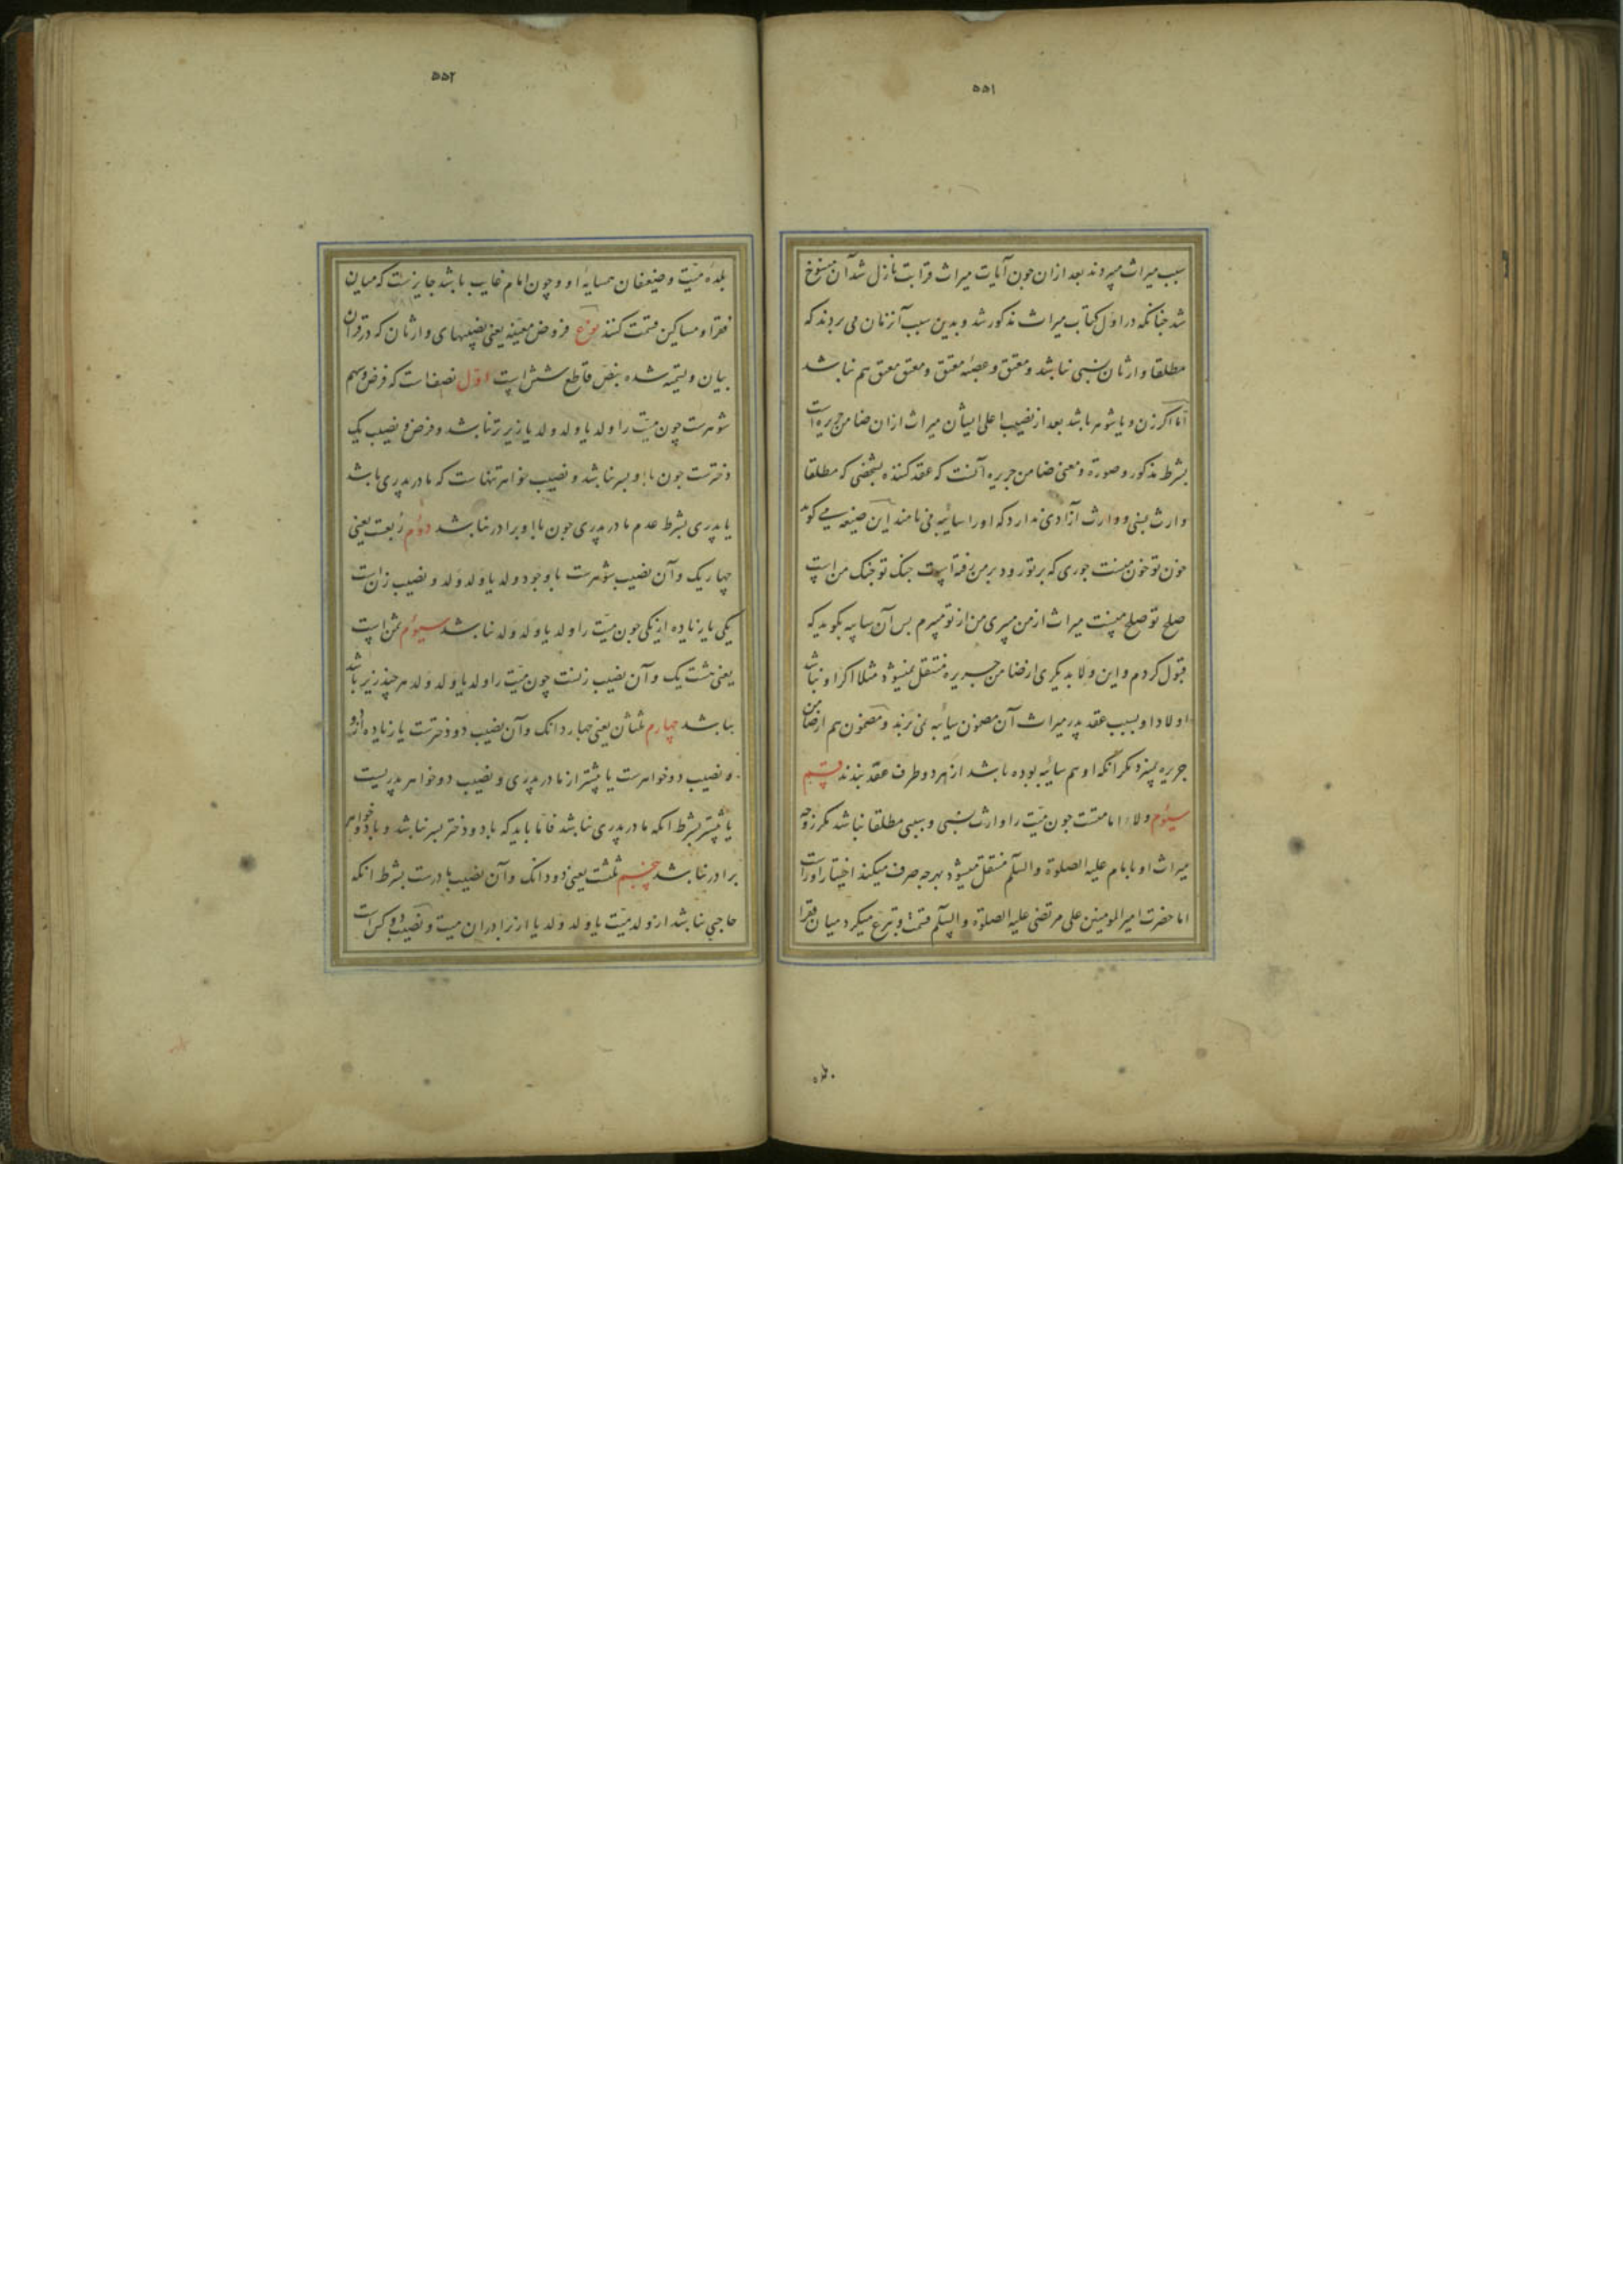 ۵۵۱
سبب میراث میبردند بعد ازان چون آیات میراث قرابت نازل شد آن منسوخ
شد چنانکه در اول کتاب میراث مذکور شد و بدین سبب آنزمان می بردند که
مطلقا وارثان نسبی نباشد و معتق و عصبهٔ معتق و معتق معتق هم نباشد
اما اگر زن و یا شوهر باشد بعد از نصیب اعلی ایشان میراث ازان ضامن جریره است
بشرط مذکور و صورة و معنی ضامن جریره آنست که عقد کننده بشخصی که مطلقا
وارث نسبی و وارث آزادی ندارد که او را سائبه می نامند این صیغه می گوید
خون تو خون منست جوری که بر تو رود بر من رفته است جنک تو جنک من است
صلح تو صلح منست میراث از من میبری من از تو میبرم پس آن سایبه بگوید که
قبول کردم و این ولا بدیگری از ضامن جریره منتقل نمیشود مثلا اگر او نباشد
اولاد او بسبب عقد پدر میراث آن مضمون سائبه نمی برند و مضمون هم از ضامن
جریره نمیبرد مگر آنکه او هم سائبه بوده باشد از هر دو طرف عقد بندند قسم
سیوم ولاء امامتست چون میّت را وارث نسبی و سببی مطلقا نباشد مگر زوجه
میراث او بامام علیه الصلوة والسلم منتقل میشود بهرچه صرف میکند اختیار اوراست
اما حضرت امیر المومنین علی مرتضی علیه الصلوة والسلم قسمت و تبرع میکرد میان فقرا
۰
۵۵۲
بلدهٔ میّت و ضیعفان همسایهٔ او و چون امام غایب باشد جایزست که میان
فقرا و مساکین قسمت کنند نوع فروض معینه یعنی نصیبهای وارثان که در قران
بیان و تسمیه شده بنصّ قاطع شش است اوّل نصفست که فرض و سهم
شوهرست چون میّت را ولد یا ولد ولد یا زیرتر نباشد و فرض و نصیب یک
دخترست چون با او پسر نباشد و نصیب خواهر تنهاست که مادر پدری باشد
یا پدری بشرط عدم مادر پدری چون با او برادر نباشد دوم ربعست یعنی
چهار یک و آن نصیب شوهرست با وجود ولد یا ولد ولد و نصیب زن است
یکی یا زیاده از یکی چون میّت را ولد یا ولد ولد نباشد سیوم ثمن است
یعنی هشت یک و آن نصیب زنست چون میّت را ولد یا ولد ولد هرچند زیر باشد
بباشد چهارم ثلثان یعنی چهار دانک و آن نصیب دو دخترست یا زیاده از دو
و نصیب دو خواهرست یا بیشتر از مادر پدری و نصیب دو خواهر پدریست
یا بیشتر بشرط آنکه مادر پدری نباشد فاما باید که با دو دختر پسر نباشد و با دو خواهر
برادر نباشد پنجم ثلث یعنی دو دانک و آن نصیب مادرست بشرط آنکه
حاجبی نباشد از ولد میّت یا ولد ولد یا از برادران میّت و نصیب دو کس است